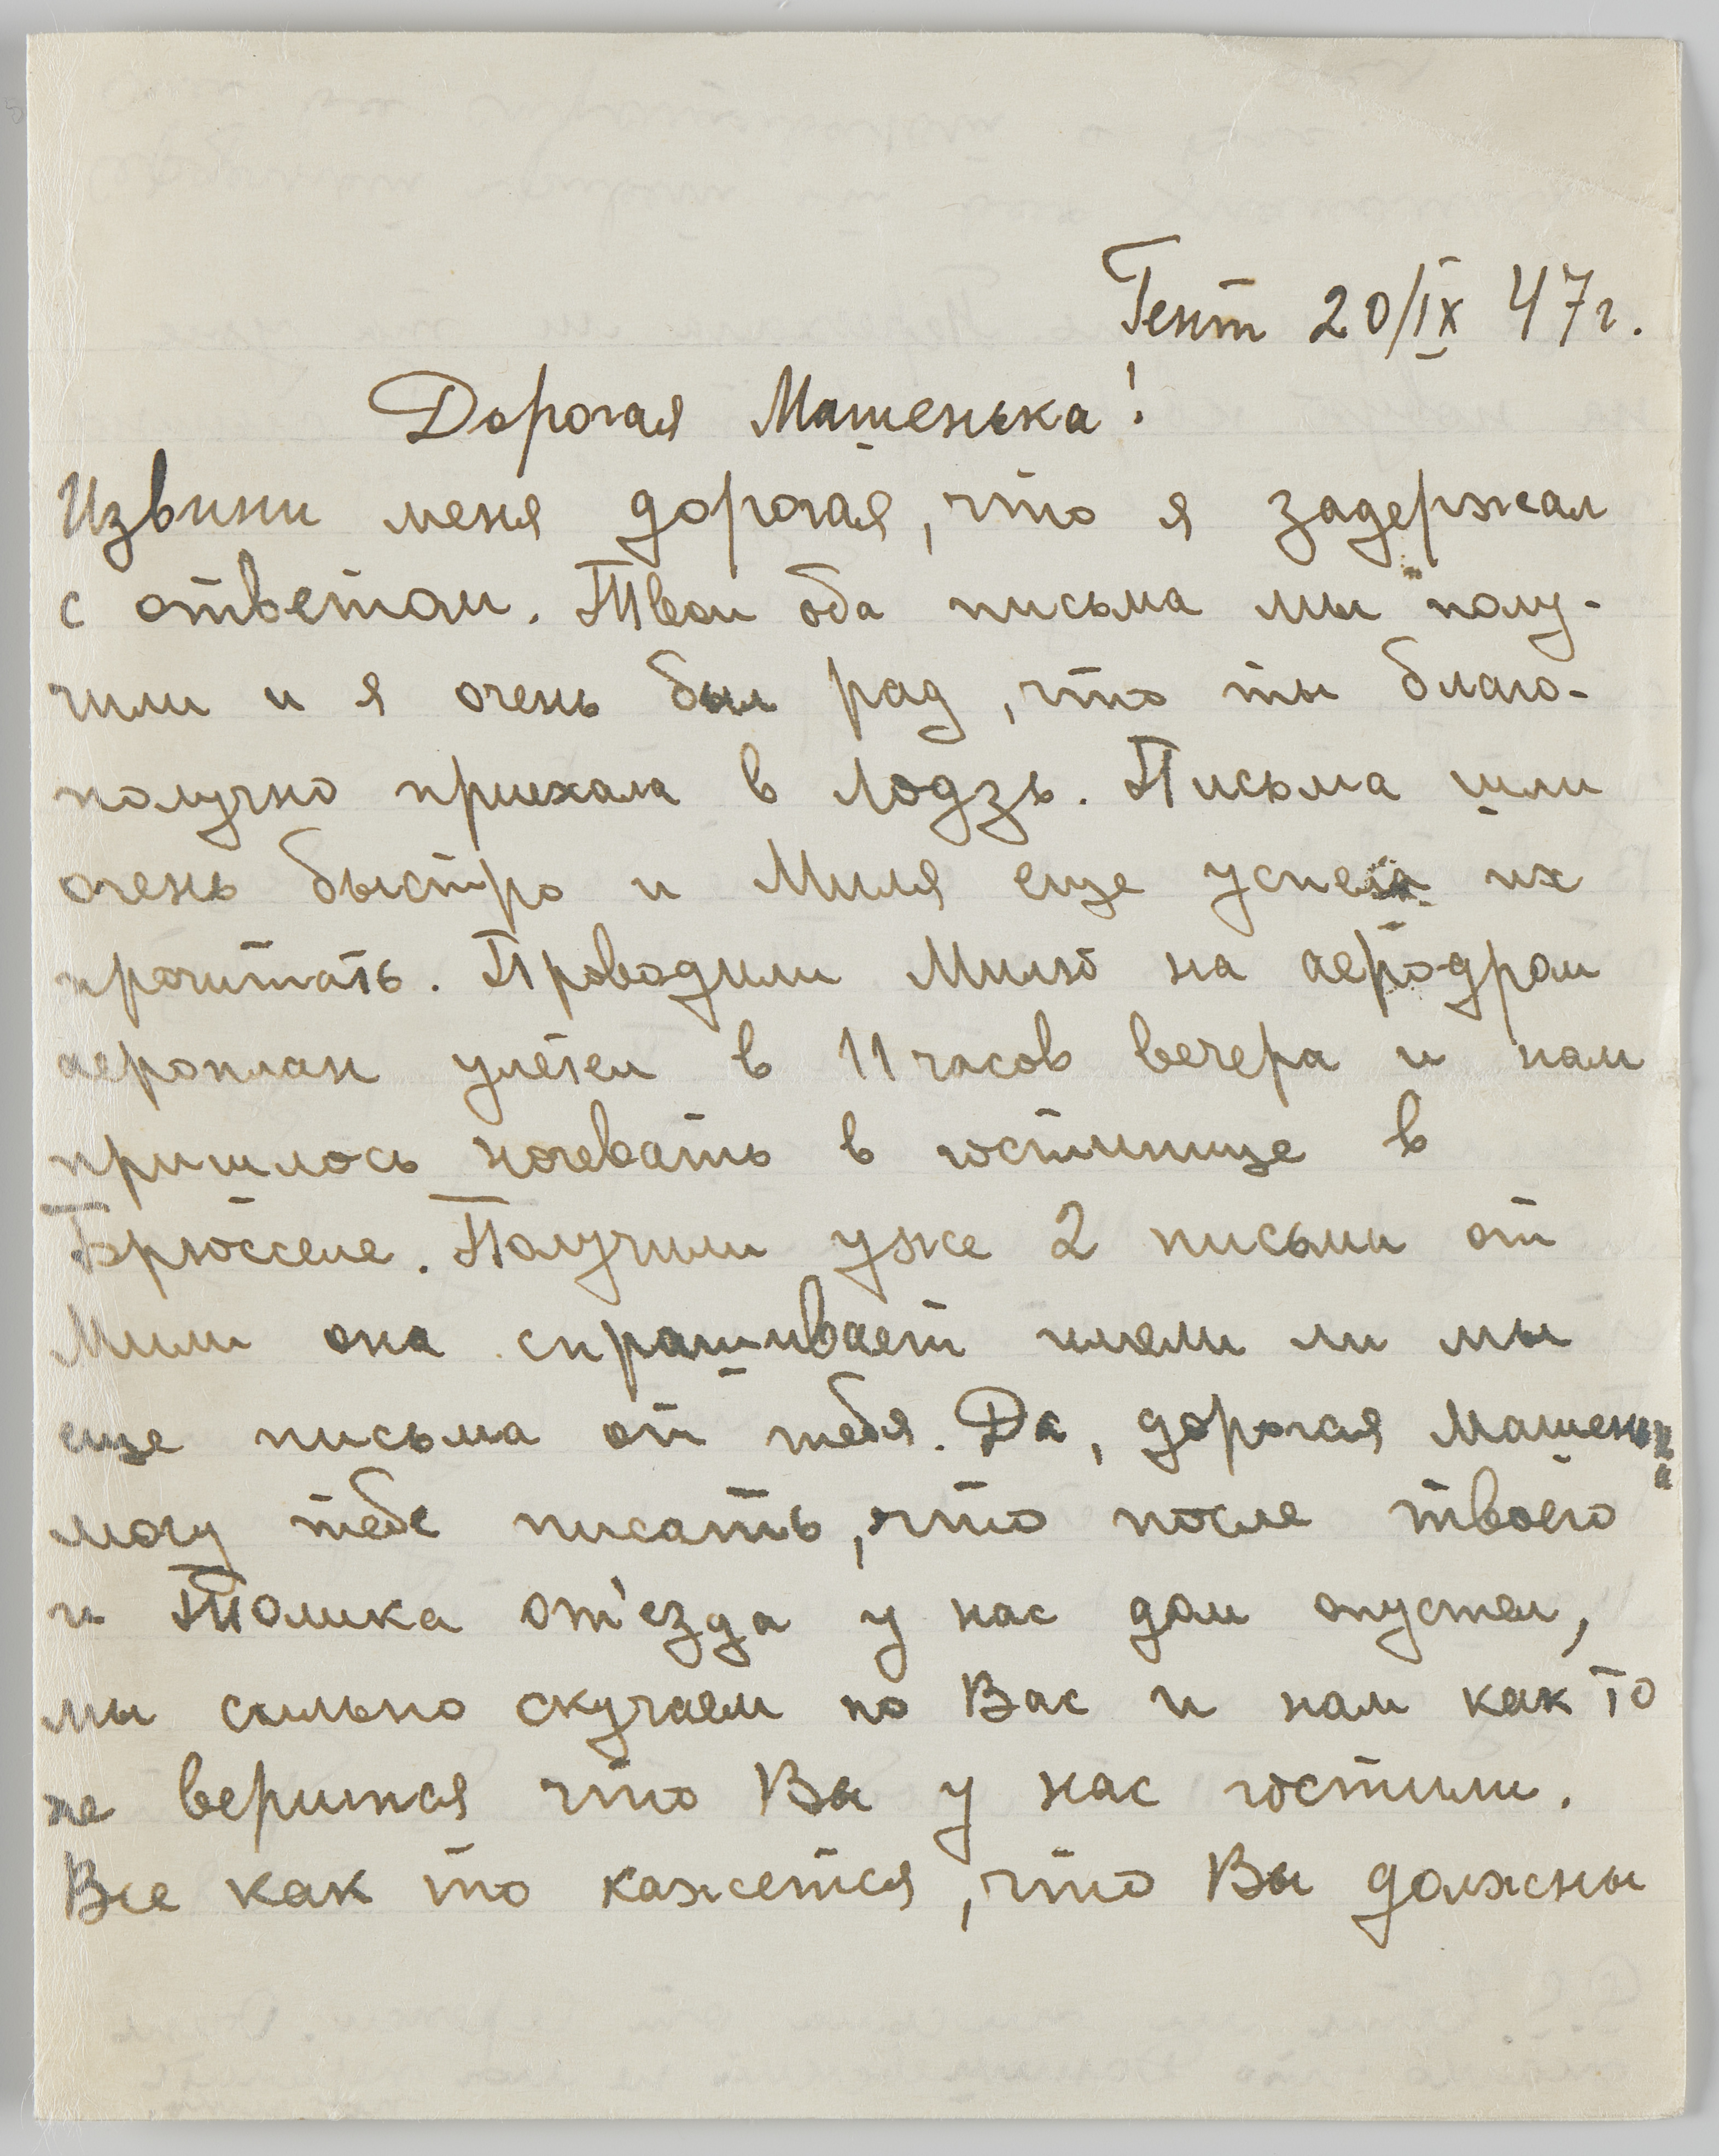 Гент 20/IX 47г.
Дорогая Машенька!
Извини меня дорогая, что я задержал
с ответом. Твои оба письма мы полу-
чили и я очень был рад, что ты благо-
получно приехала в Лодзь. Письма шли
очень быстро и Миля еще успела их
прочитать. Проводили Милю на аеродром
аероплан улетел в 11 часов вечера и нам
пришлось ночевать в гостинице в
Брюсселе. Получили уже 2 письма от
Мили она спрашивает имели ли мы
еще письма от тебя. Да, дорогая Машенька
могу тебе писать, что после твоего
и Толика от'езда у нас дом опустел,
мы сильно скучаем по Вас и нам как то
не верится что Вы у нас гостили.
Все как то кажется, что Вы должны